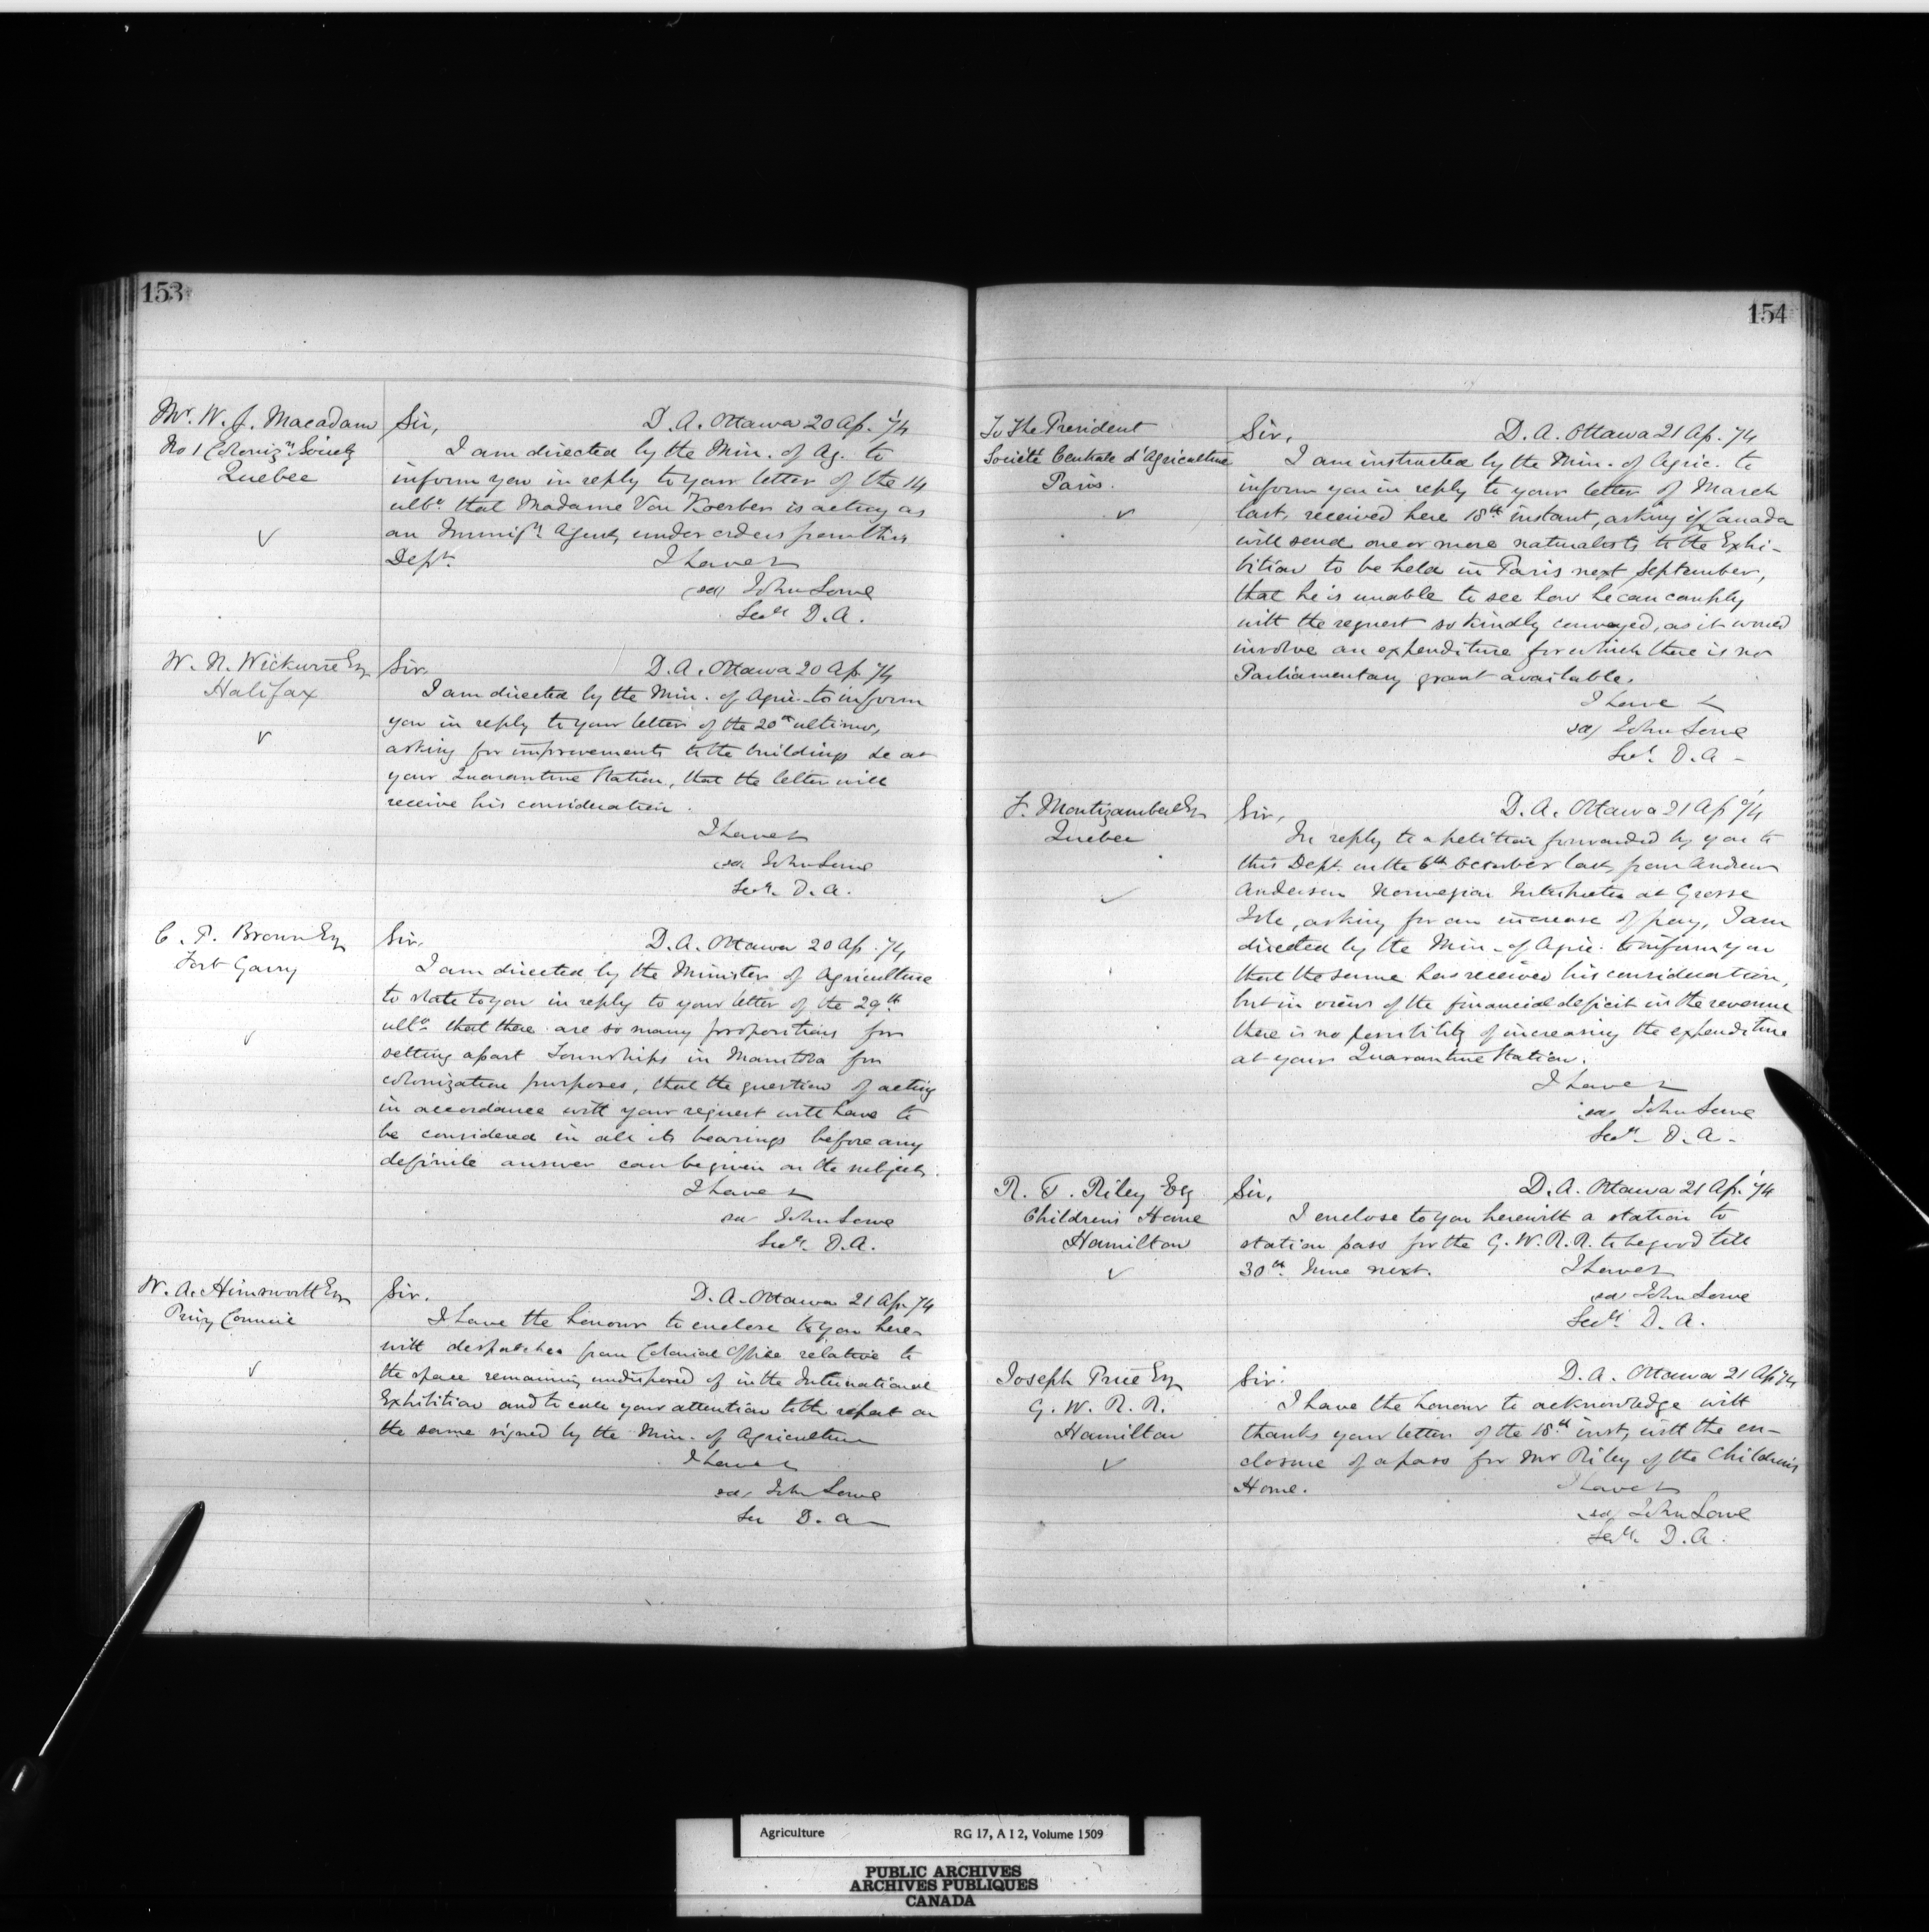 153
Mr. W. J. Macadam
No 1 Coloniz.n Society
Quebec
Sir, D. A. Ottawa 20 Ap. /74
I am directed by the Min. of Ag. to
inform you in reply to your letter of the 14
ulto. that Madame Von Koerber is acting as
an Immig.n Agent, under orders from this
Dept. I have &
(sd) John Lowe
Secy. D.A.
W. N. Wickwire Esq
Halifax
Sir. D. A. Ottawa 20 Ap. /74
I am directed by the Min. of Agric. to inform
you in reply to your letter of the 20th ultimo,
asking for improvements to the buildings &c at
your Quarantine Station, that the letter will
receive his consideration.
I have &
(sd) John Lowe
Secy. D. A.
C. P. Brown Esq
Fort Garry
Sir. D. A. Ottawa 20 Ap. /74
I am directed by the Minister of Agriculture
to state to you in reply to your letter of the 29th
ulto. that there are so many propositions for
setting apart Townships in Manitoba for
colonization purposes, that the question of acting
in accordance with your request will have to
be considered in all its bearings before any
definite answer can be given on the subject.
I have &
sd John Lowe
Secy. D.A.
W. A. Himsworth Esq
Privy Council
Sir. D. A. Ottawa 21 Ap. /74
I have the honour to enclose to you here-
with despatches from Colonial Office relative to
the space remaining undisposed of in the International
Exhibition and to call your attention to the report on
the same signed by the Min. of Agriculture
I have &
sd John Lowe
Sec D. A
154
To The President
Société Centrale d'Agriculture
Paris.
Sir, D. A. Ottawa 21 Ap. /74
I am instructed by the Min. of Agric. to
inform you in reply to your letter of March
last, received here 18th instant, asking if Canada
will send one or more naturalists to the Exhi-
bition to be held in Paris next September,
that he is unable to see how he can comply
with the request so kindly conveyed, as it would
involve an expenditure for which there is no
Parliamentary grant available.
I have &
sd/ John Lowe
Secy. D. A
F. Montizambert Esq
Quebec
Sir, D. A. Ottawa 21 Ap /74
In reply to a petition forwarded by you to
this Dept. on the 6th December last, from Andrew
Anderson Norwegian Interpreter at Grosse
Isle, asking for an increase of pay, I am
directed by the Min. of Agric. to inform you
that the same has received his consideration,
but in view of the financial deficit in the revenue
there is no possibility of increasing the expenditure
at your Quarantine Station.
I have &
sd John Lowe
Secy. D. A.
R. T. Riley Esq
Childrens' Home
Hamilton
Sir, D. A. Ottawa 21 Ap. /74
I enclose to you herewith a station to
station pass for the G. W. R. R. to be good till
30th June next. I have &
sd John Lowe
Secy. D. A.
Joseph Price Esq
G. W. R. R.
Hamilton
Sir. D. A. Ottawa 21 Ap /74
I have the honour to acknowledge with
thanks your letter of the 18th inst, with the en-
closure of a pass for Mr Riley of the Children's
Home. I have &
sd/ John Lowe
Secy. D. A.
Agriculture RG 17, A I 2, Volume 1509
PUBLIC ARCHIVES
ARCHIVES PUBLIQUES
CANADA